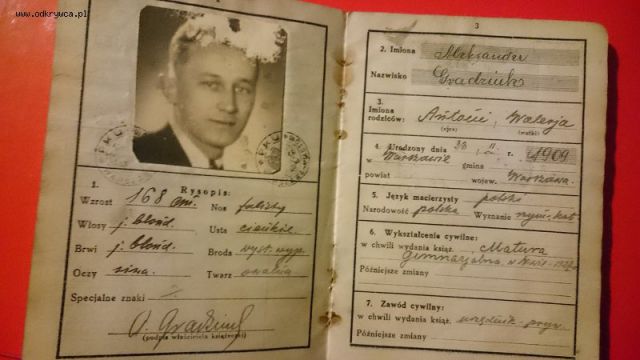 www.odkrywca.pl
1.
Rysopis:
Wzrost 168 cm. Nos
Włosy j. blond. Usta
Brwi j. blond. Broda
Oczy Twarz owalna
Specjalne znaki
(podpis właściciela książeczki)
3
2. Imiona Aleksander
Nazwisko
3.
Imiona
rodziców: Antoni, Walerja
(ojca) (matki)
4. Urodzony dnia r. 1909
w Warszawie gmina
powiat wojew. Warszawa.
5. Język macierzysty polski
Narodowość polska Wyznanie rzym.-kat.
6. Wykształcenie cywilne:
w chwili wydania książ. Matura
gimnazjalna w
Późniejsze zmiany
7. Zawód cywilny:
w chwili wydania książ. urzędnik - pryw.
Późniejsze zmiany